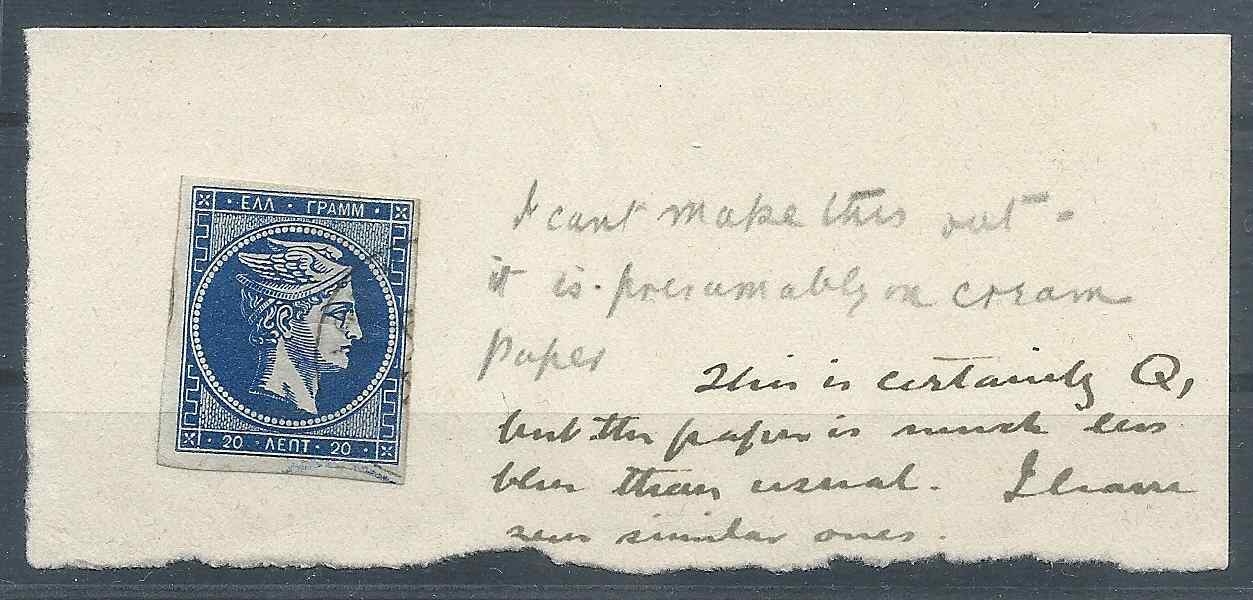 · ΕΛΛ · ΓΡΑΜΜ ·
· 20 · ΛΕΠΤ · 20 ·
I cant make this out -
it is presumably on cream
paper
This is certainly Q,
but the paper is much less
blue than usual. I have
seen similar ones.